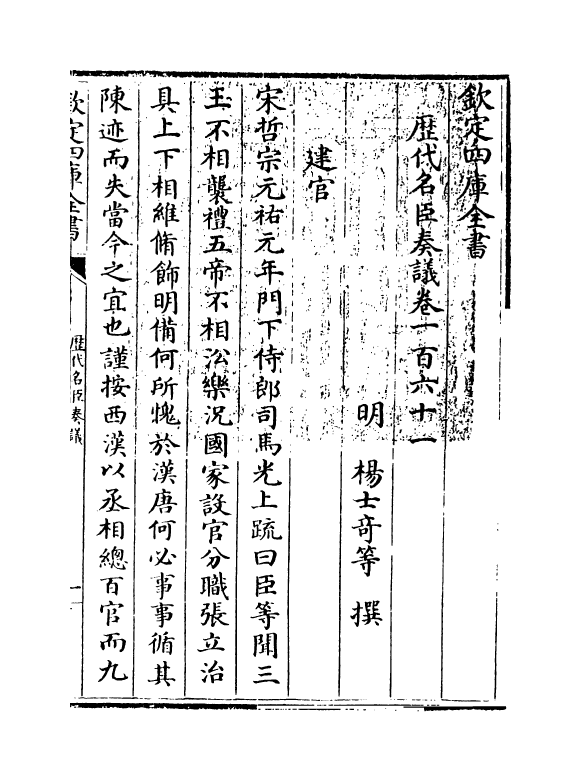 欽定四庫全書
歴代名臣奏議卷一百六十一
明 楊士竒等 撰
建官
宋哲宗元祐元年門下侍郎司馬光上䟽曰臣等聞三
王不相襲禮五帝不相㳂樂況國家設官分職張立治
具上下相維脩飾明備何所愧於漢唐何必事事循其
陳迹而失當今之宜也謹按西漢以丞相總百官而九
欽定四庫全書
歴代名臣奏議
一